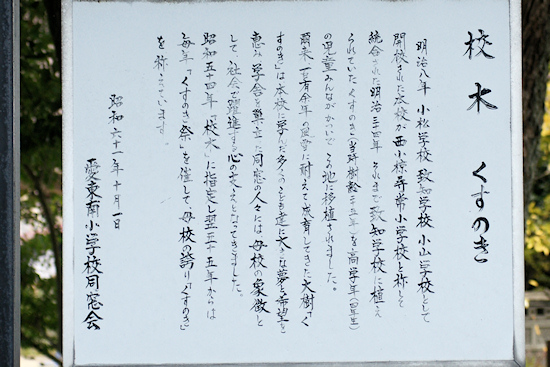 校木 くすのき
明治八年 小松学校 致知学校 小山学校として
開校された本校が西小椋尋常小学校と称して
統合された明治三四年 それまで致知学校に植え
られていたくすのき(当時樹齢二五年)を高学年(四年生)
の児童みんながかついでこの地に移植されました。
爾来一百有余年の風雪に耐えて成育してきた大樹「く
すのき」は本校に学んだ多くのこども達に大きな夢と希望を
恵み 学舎を巣立った同窓の人々には母校の象徴と
して社会で躍進する心の支えとなってきました。
昭和五十四年「校木」に指定し翌五十五年からは
毎年「くすのき祭」を催して、母校の誇り「くすのき」
を称えています。
昭和六十一年十月一日
愛東南小学校同窓会